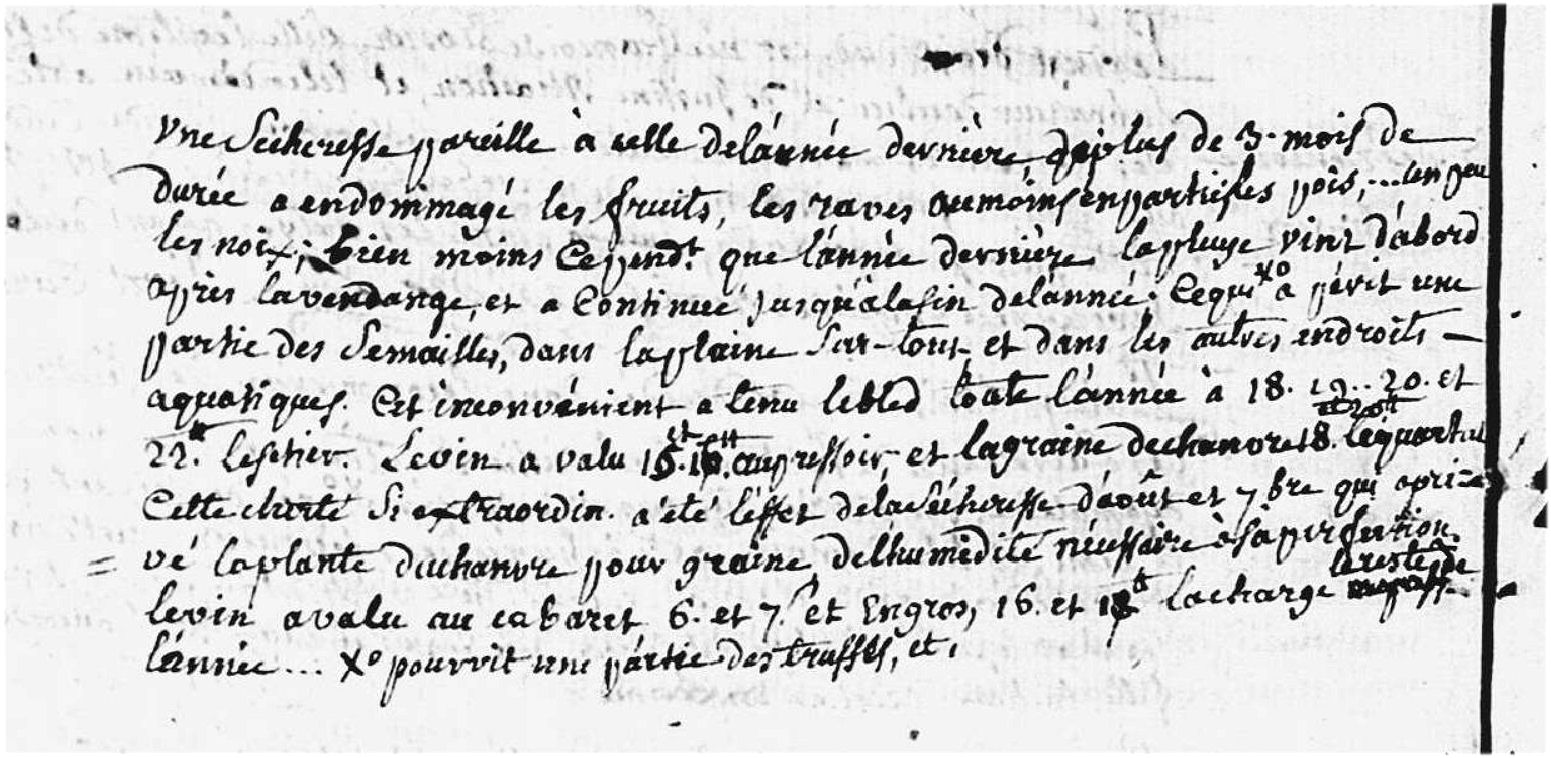 Une Seicheresse pareille à celle de l'année dernière de plus de 3. mois de
durée a endommagé les fruits, les raves au moins en partie, les pois, ... un peu
les noix; bien moins Cepend.t que l'année dernière la pluye vint d'abord
après la vendange, et a Continué jusqu'à la fin de l'année. Ce qui Xo a périt une
partie des Semailles, dans la plaine Sur-tout, et dans les autres endroits -
aquatiques. Cet inconvénient a tenu le bled toute l'année à 18. 19.. 20. et
22.tt le setier. Le vin a valu 15. et 16.tt au pressoir, et la graine de chanvre 18. et 20tt le quartal
Cette cherté Si extraordin. a été l'effet de la Séicheresse d'août et 7bre qui a pri=
= vé la plante du chanvre pour graine de l'humidité nécessaire à sa perfection.
le vin a valu au cabaret 6. et 7.s et En gros, 16. et 18tt la charge le reste de
l'année... Xo pourrit une partie des truffes, et.